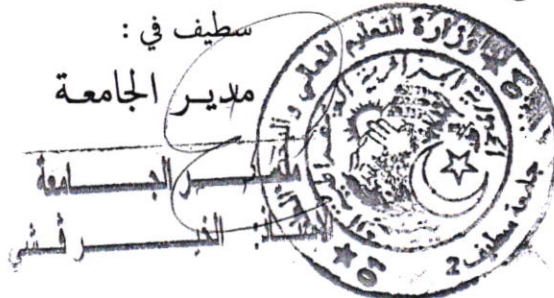 سطيف في :
مديـر الجامعـة
مديـــر الجـــامعة
الأستاذ: الخيـــر قـشي
وزارة التعليم العالي والبحث العلمي
الجمهورية الجزائرية الديمقراطية الشعبية
جامعة سطيف 2